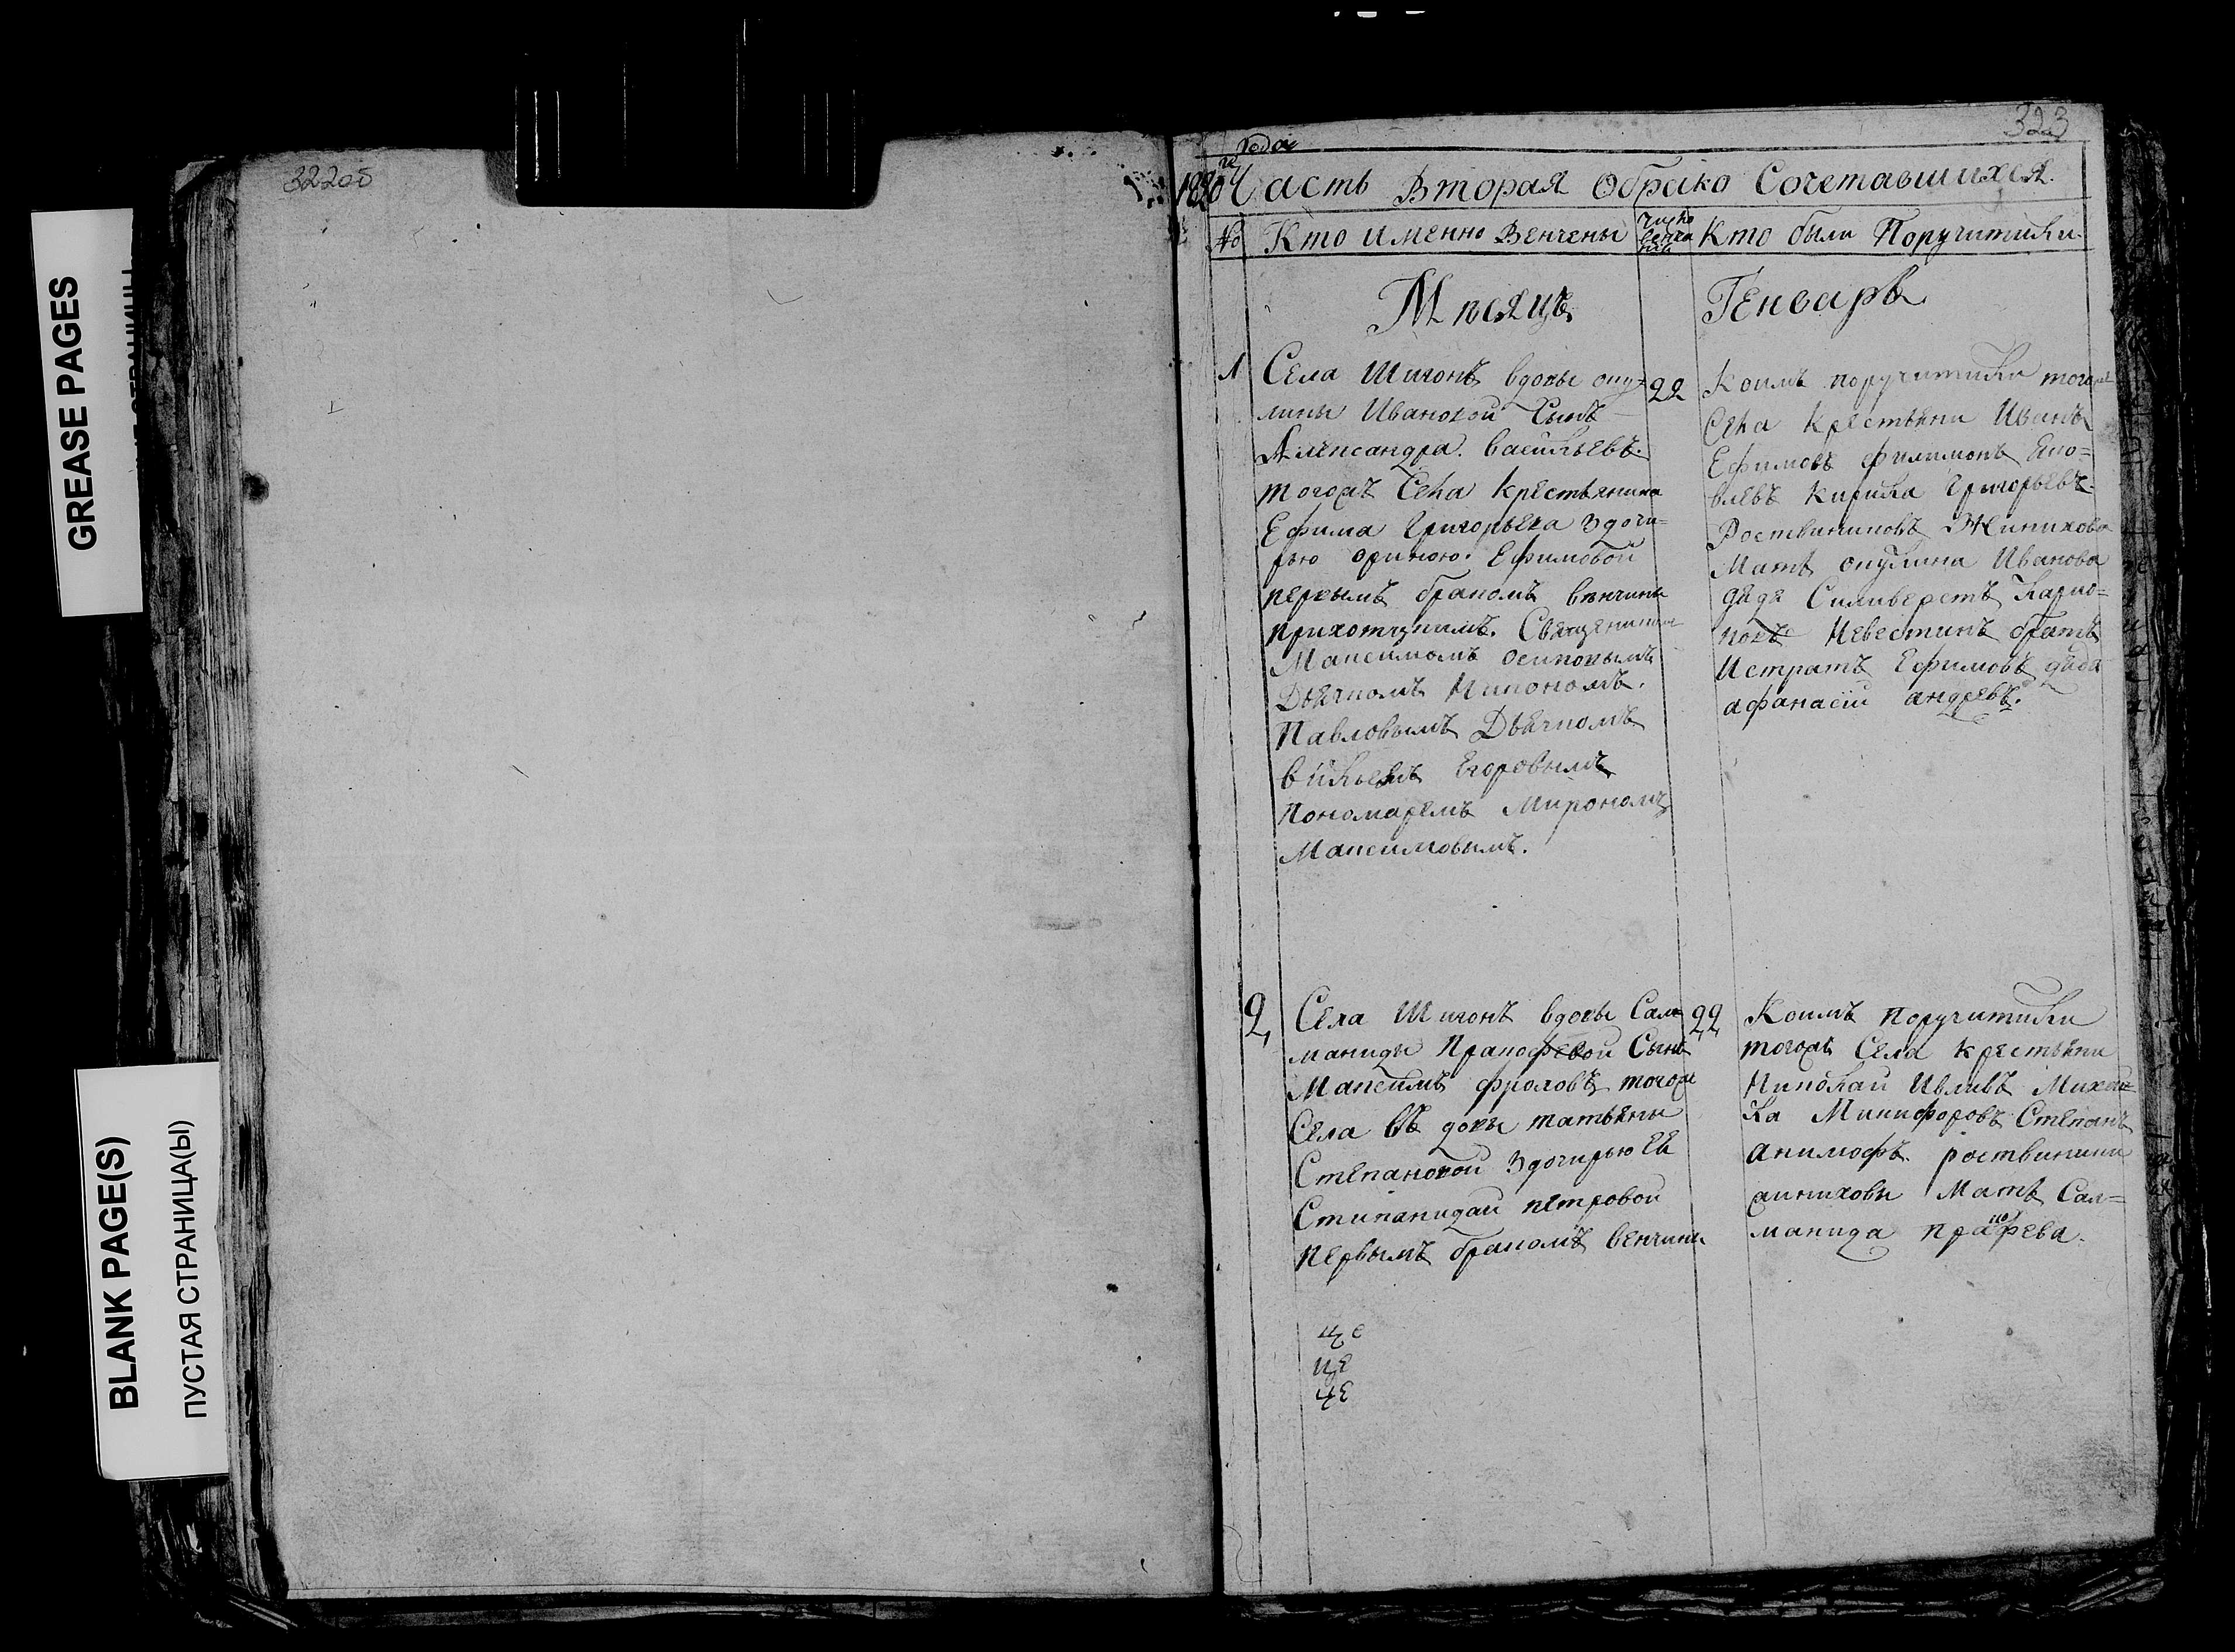 GREASE PAGES
BLANK PAGE(S)
ПУСТАЯ СТРАНИЦА(Ы)
322об
323
года
Часть Вторая Обрако Сочетавшихся.
№ Кто именно Венчены Число венча ния Кто были Поручители
Месяцъ Генварь
1 Села Шигонъ вдовы аку=
лины Ивановой Сынъ
Александра. васильевъ.
тогожъ Села крестьянина
Ефима Григорьева здочи=
рью ориною. Ефимовой
первымъ бракомъ венчины
приходскимъ. Священникомъ
Максимомъ осиповымъ
Дьячкомъ Никономъ.
Павловымъ Дьячкомъ
Егоровымъ
Пономаремъ Мирономъ
Максимовымъ.
22
Коимъ поручители тогожъ
Села крестьяни Иванъ
Ефимовъ филимонъ
Кирила Григорьевъ
Жинихова
Мать акулина Иванова
дядя Силиверстъ Карпо=
Невестинъ братъ
Истратъ Ефимовъ дядя
афанасiй андреевъ.
2 Села Шигонъ вдовы Сала
маниды Пракофевой Сынъ
Максимъ фроловъ тогожъ
Села въ довы татьяны
Степановой здочирью ея
Стипанидай петровой
первымъ бракомъ венчины
22
Коимъ поручители
тогожъ Села крестьяни
Никалай Ивливъ Михай=
ла Никифоровъ Степанъ
акимофъ. роственики
жинховы Мать Сал=
манида пракофева.
це
це
це